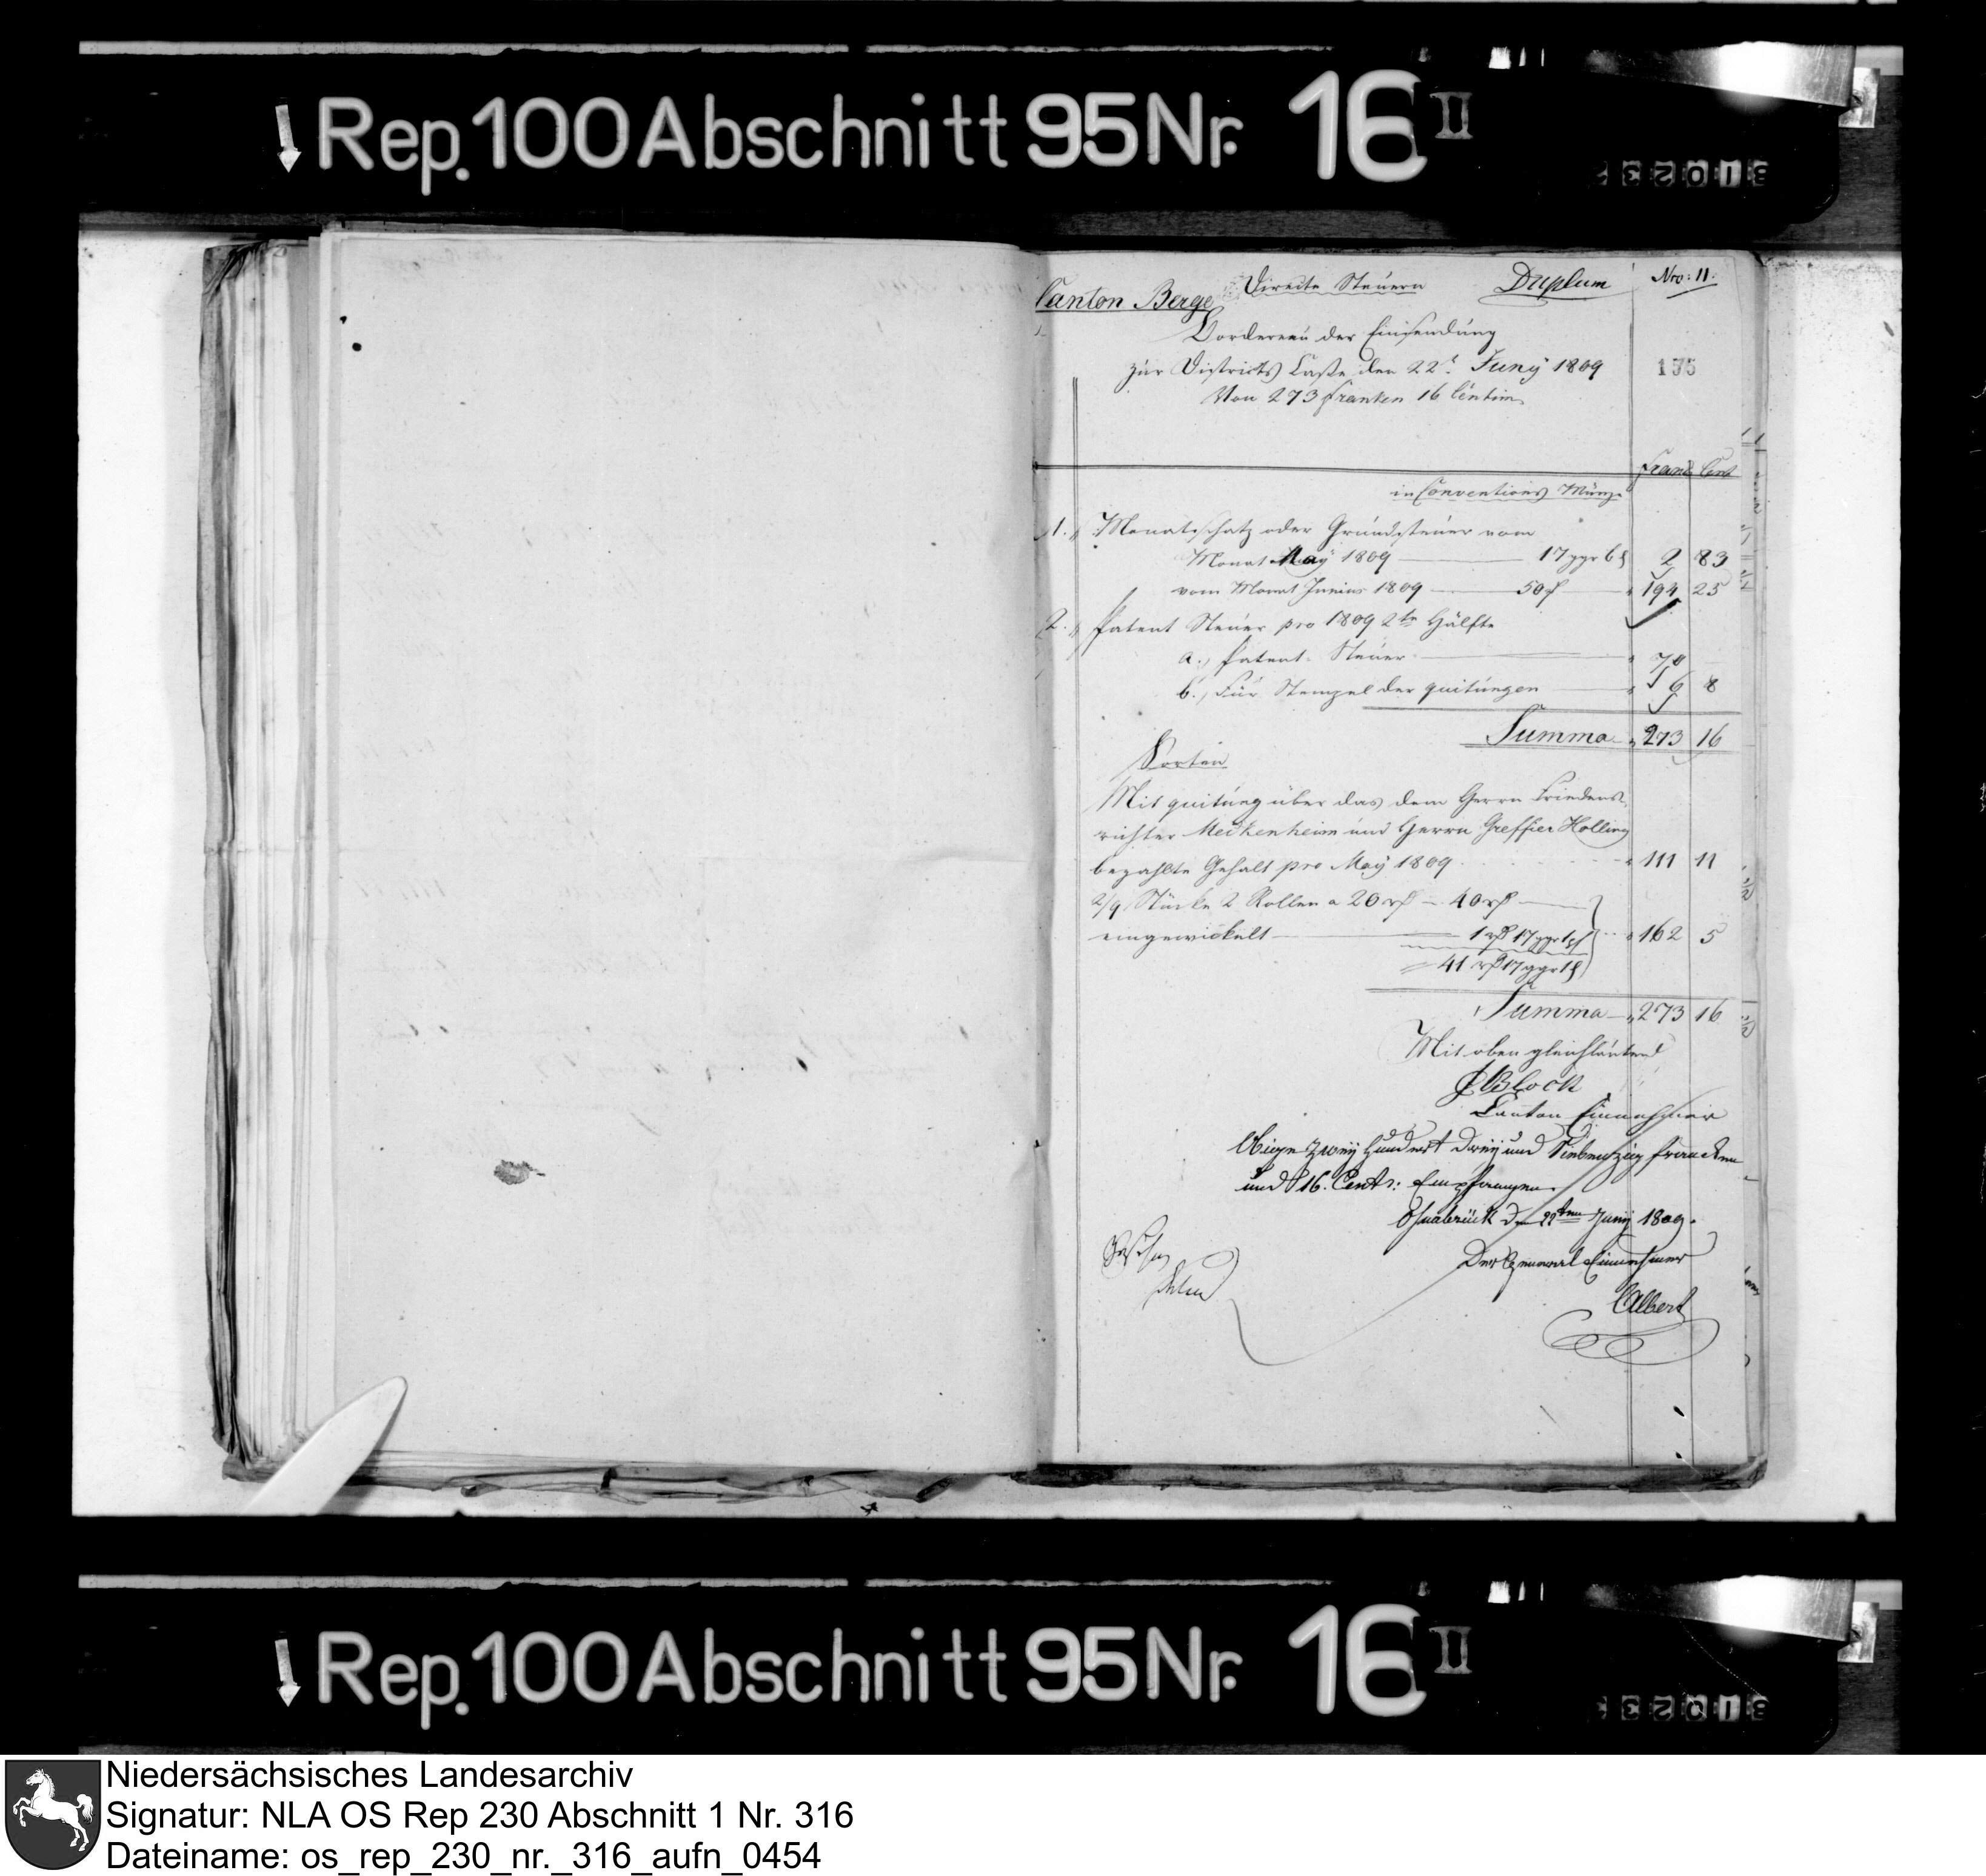 Rep. 100 Abschnitt 95 Nr. 16 II
310232
Canton Berge
Directe Steuern
Duplum
Nro: 11.
Bordereau der Einsendung
zur Districts Casse den 22t Juny 1809
Von 273 Franken 16 Centim.
175
Franc Cent
in Conventions Münze
1. Monatsschatz oder Grundsteuer vom
Monat May 1809 — 17 ggr 6 ₰ 2 83
vom Monat Junius 1809 — 50 rf " 194 25
2. Patent Steuer pro 1809 2te Hälfte
a., Patent-Steuer — " 70
b., Für Stempel der quitungen — " 6 8
Summa — " 273 16
Sorten
Mit quitung über das dem Herrn Friedens-
richter Meckenheim und Herrn Greffier Holling
bezahlte Gehalt pro May 1809 " 111 11
2/9 Stücke 2 Rollen a 20 rf — 40 rf —
eingewickelt — 1 rf 17 ggr 1 ₰ " 162 5
= 41 rf 17 ggr 1 ₰
Summa — " 273 16
Mit oben gleichlautend
Block
Canton Einnehmer
Obige Zwey Hundert Drey und Siebenzig Francken
und 16. Cents: Empfangen.
Osnabrück den 22ten Juny 1809.
Der General Einnehmer
Albert
Rep. 100 Abschnitt 95 Nr. 16 II
310232
Niedersächsisches Landesarchiv
Signatur: NLA OS Rep 230 Abschnitt 1 Nr. 316
Dateiname: os_rep_230_nr._316_aufn_0454